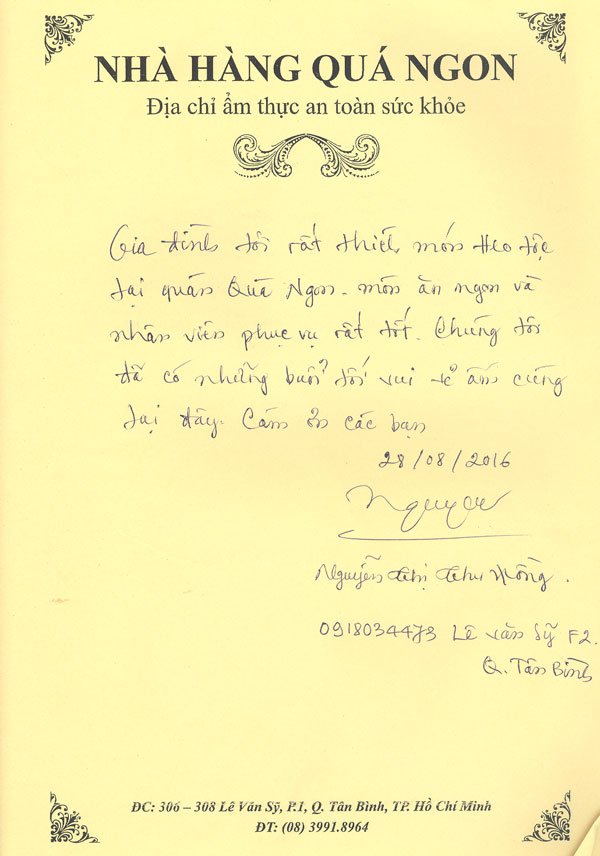 NHÀ HÀNG QUÁ NGON
Địa chỉ ẩm thực an toàn sức khỏe
Gia đình tôi rất thích món Heo tộc
tại quán Quá Ngon. món ăn ngon và
nhân viên phục vụ rất tốt. Chúng tôi
đã có những buổi tối vui vẻ ấm cúng
tại đây. Cám ơn các bạn
28/08/2016
Nguyễn thị thu Hồng.
0918034473 Lê Văn Sỹ F2.
Q. Tân Bình
ĐC: 306 – 308 Lê Văn Sỹ, P.1, Q. Tân Bình, TP. Hồ Chí Minh
ĐT: (08) 3991.8964